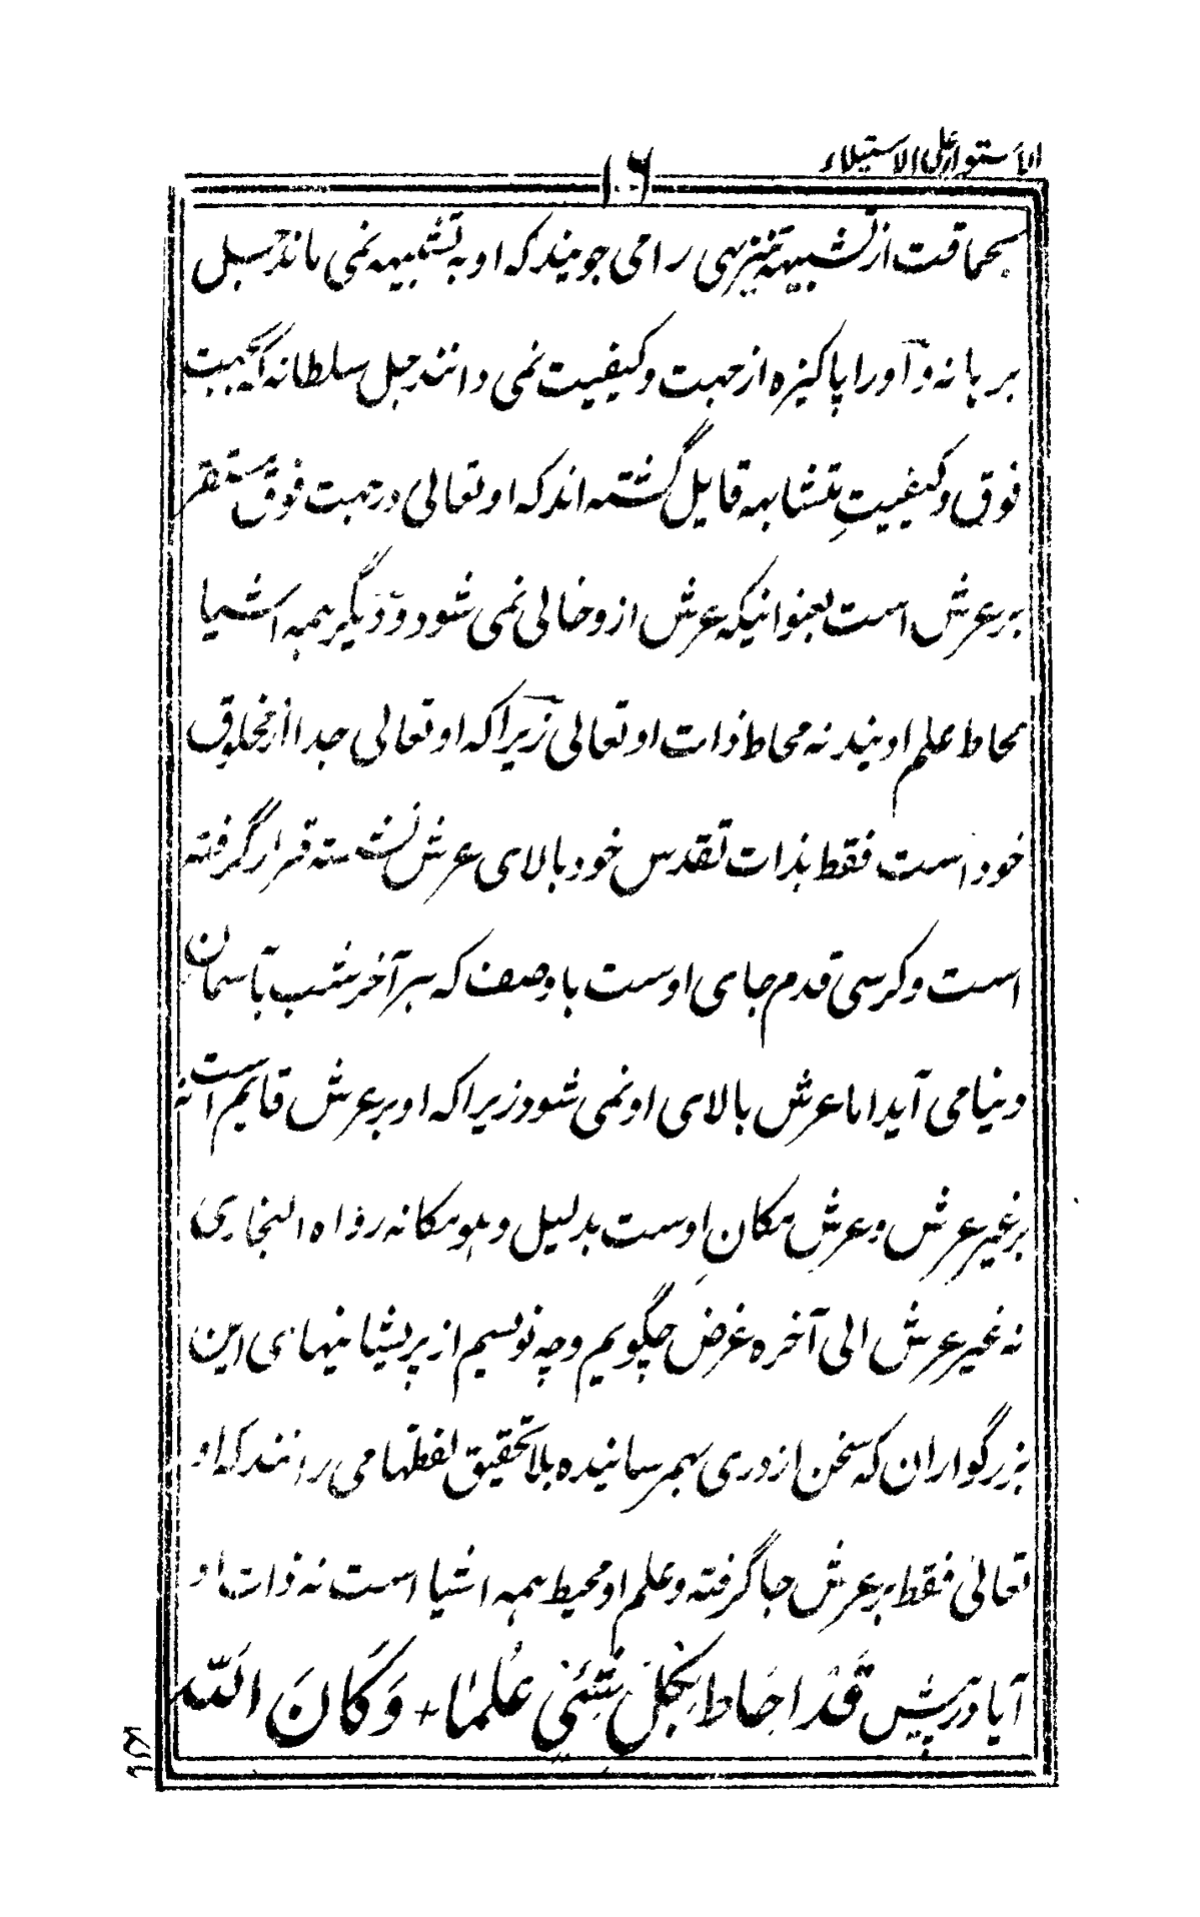 الاستواء علی الاستیلاء
۱۰۶
بحماقت از تشبیهه تنزیهی را می جویند که او به تشبیهه نمی ماند جل
برهانه و آورا پاکیزه از جهت و کیفیت نمی دانند جل سلطانه که بجهت
فوق و کیفیتِ متشابهه قایل گشته اند که او تعالی در جهت فوق مستقر
بر عرش است بعنوانیکه عرش از و خالی نمی شود و دیگر همه اشیا
محاط علم اویند نه محاط ذات او تعالی زیرا که او تعالی جدا از مخلوق
خود است فقط بذات تقدس خود بالای عرش نشسته قرار گرفته
است و کرسی قدم جای اوست باوصف که هر آخر شب تا آسمان
دنیا می آید اما عرش بالای او نمی شود زیرا که او بر عرش قایم است نه
بر غیر عرش و عرش مکانِ اوست بدلیل و هو مکانه رواه البخاری
نه غیر عرش الی آخره غرض چگویم و چه نویسم از پریشانیهای این
بزرگواران که سخن از دری بهمرسانیده بلا تحقیق لفظها می رانند که او
تعالی فقط بر عرش جا گرفته و علم او محیط همه اشیا است نه ذات او
آیا در پیش قَدْ اَحَاطَ بِکُلِّ شَیْئٍ عِلْمًا + وَکَانَ اللّٰه